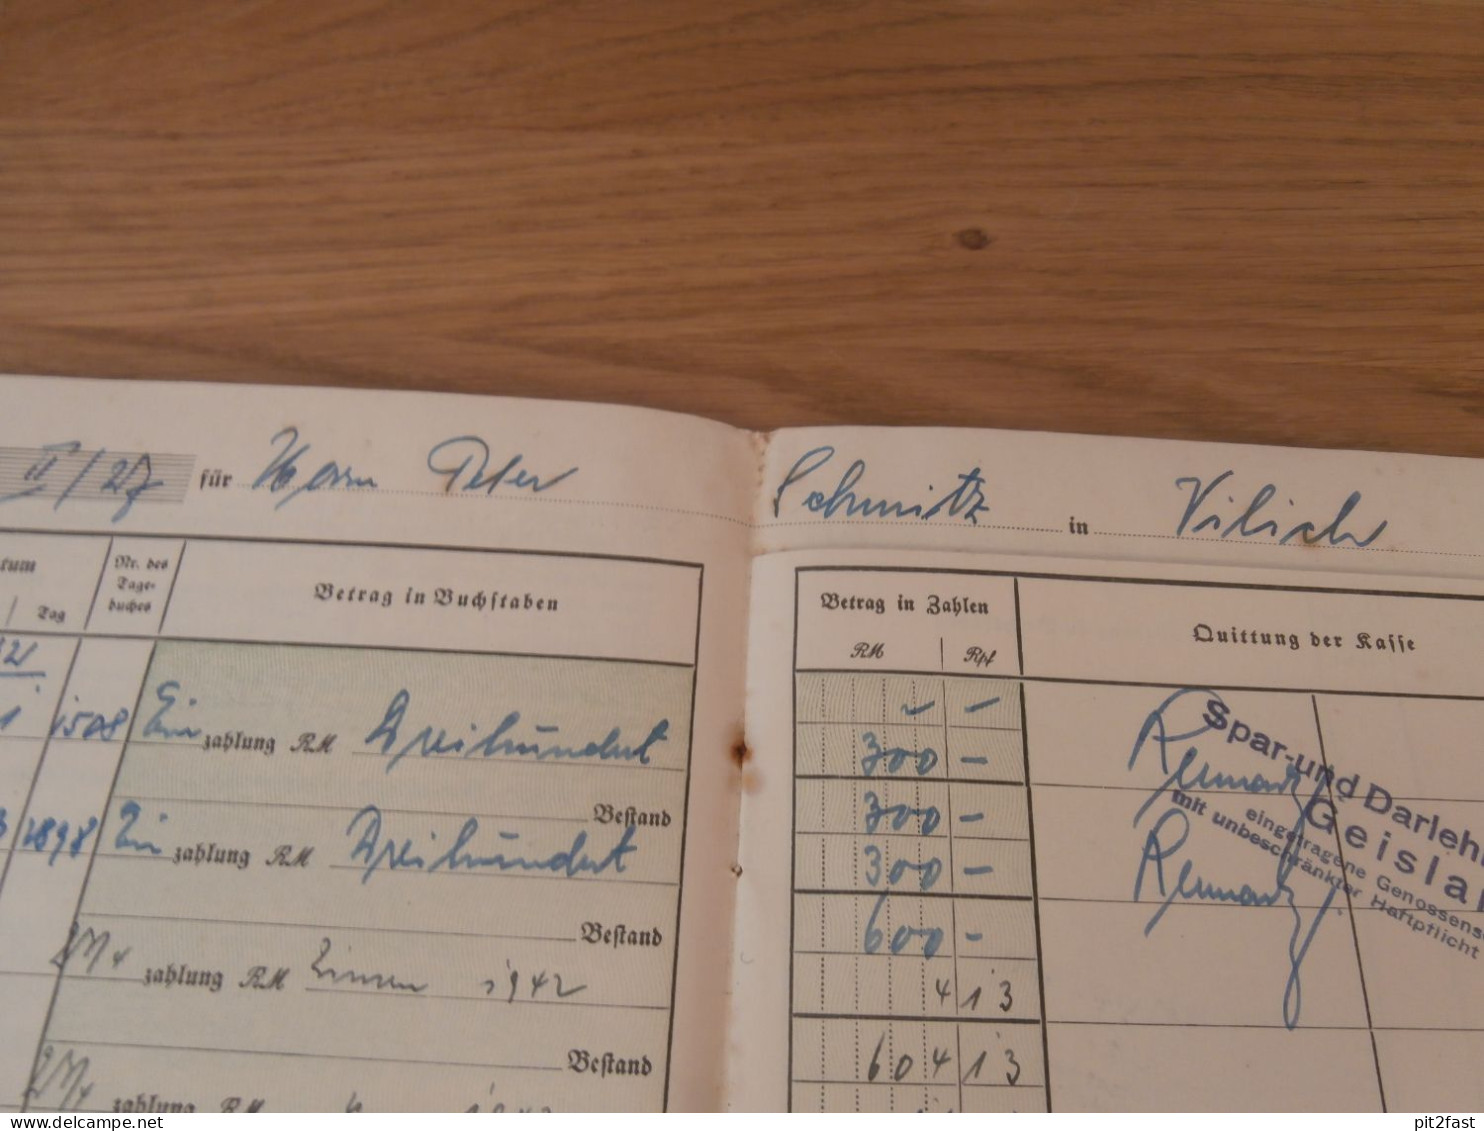 II/27 für Herrn Peter Schmitz in Vilich
Nr. des
Tage-
buches
Tag
Betrag in Buchstaben
Betrag in Zahlen
RM Rpf
Quittung der Kasse
1508 Einzahlung RM Dreihundert
300 -
Bestand
300 -
2898 Einzahlung RM Dreihundert
300 -
Bestand
600 -
zahlung RM Zinsen 1942
4 13
Bestand
604 13
zahlung RM
Spar-und Darlehn
Geislar
eingetragene Genossens
mit unbeschränkter Haftpflicht
pit2fast
www.delcampe.net